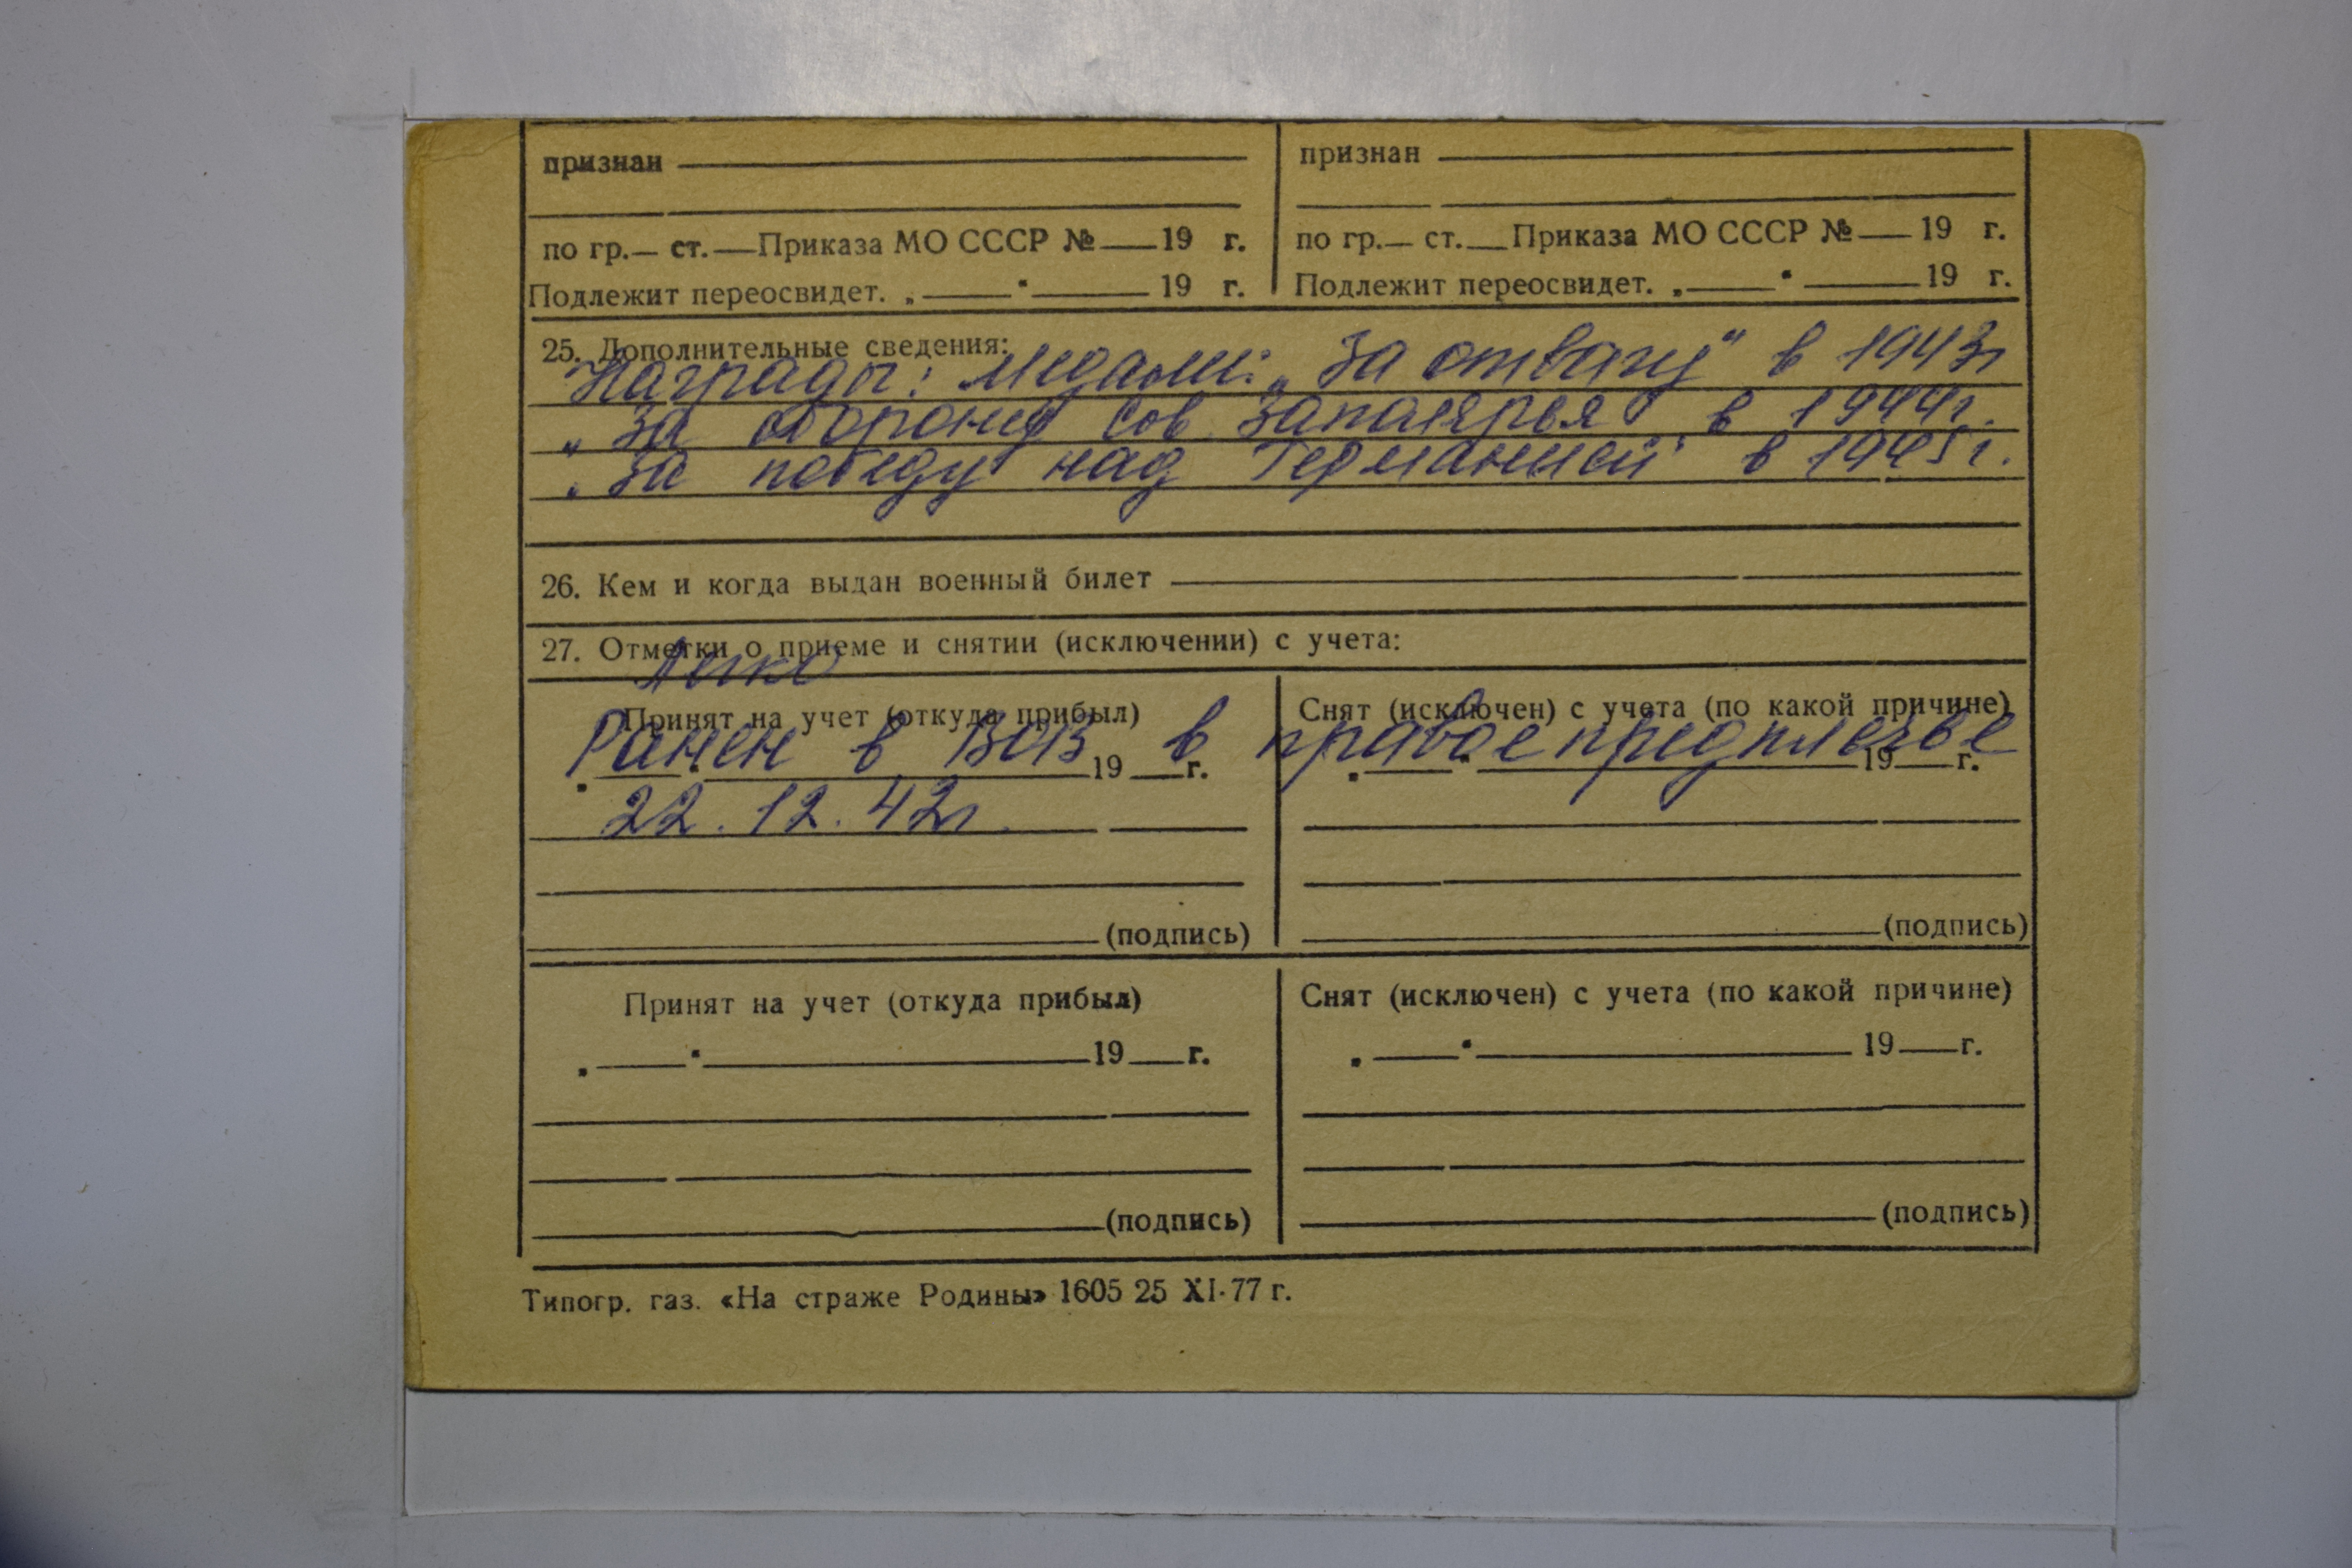 признан
признан
по гр.— ст.—Приказа МО СССР №—19 г.
по гр.— ст.—Приказа МО СССР №—19 г.
Подлежит переосвидет. „—"—19 г.
Подлежит переосвидет. „—"—19 г.
25. Дополнительные сведения:
Награды: Медали: „За отвагу" в 1943г
„За оборону Сов Заполярья" в 1944г.
„За победу над Германией" в 1945г.
26. Кем и когда выдан военный билет
27. Отметки о приеме и снятии (исключении) с учета:
Легко
Принят на учет (откуда прибыл)
Снят (исключен) с учета (по какой причине)
Ранен в ВОВ в правое предплечье
„—"—19—г.
„—"—19—г.
22.12.42г.
(подпись)
(подпись)
Принят на учет (откуда прибыл)
Снят (исключен) с учета (по какой причине)
„—"—19—г.
„—"—19—г.
(подпись)
(подпись)
Типогр. газ. «На страже Родины» 1605 25 XI-77 г.